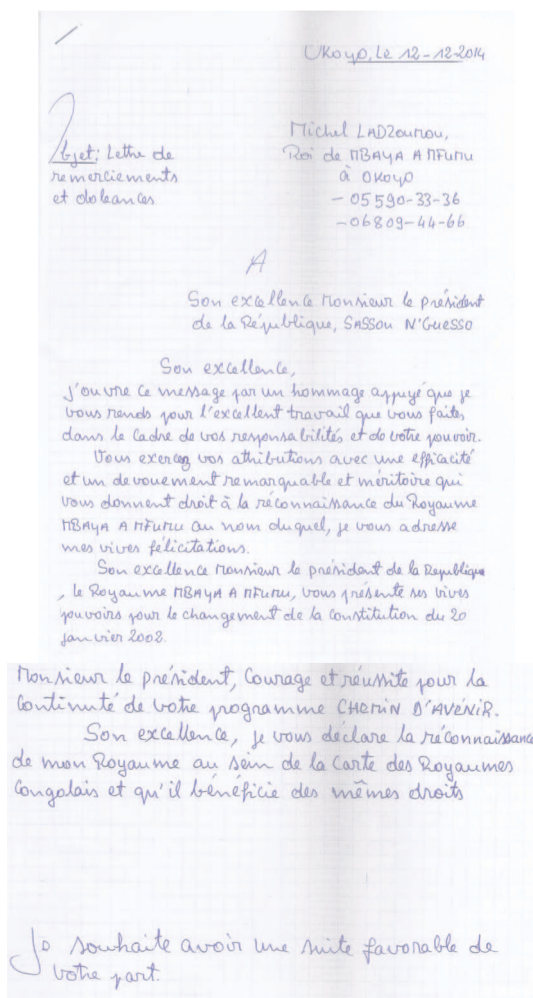 Okoyo, Le 12-12-2014
Michel LADZOUMOU,
Roi de MBAYA A MFUMU
à OKOYO
- 05 590-33-36
- 06 809-44-66
Objet: Lettre de
remerciements
et doleances
A
Son excellence Monsieur le président
de la République, SASSOU N'GUESSO
Son excellence,
J'ouvre ce message par un hommage appuyé que je
vous rends pour l'excellent travail que vous faites,
dans le cadre de vos responsabilités et de votre pouvoir.
Vous exercez vos attributions avec une efficacité
et un devouement remarquable et méritoire qui
vous donnent droit à la réconnaissance du Royaume
MBAYA A MFUMU au nom duquel, je vous adresse
mes vives félicitations.
Son excellence Monsieur le président de la Republique
, le Royaume MBAYA A MFUMU, vous présente ses vives
pouvoirs pour le changement de la constitution du 20
janvier 2002.
Monsieur le président, Courage et réussite pour la
Continuté de votre programme CHEMIN D'AVENIR.
Son excellence, je vous déclare la réconnaissance
de mon Royaume au sein de la Carte des Royaumes
Congolais et qu'il bénéficie des mêmes droits
Je souhaite avoir une suite favorable de
votre part.